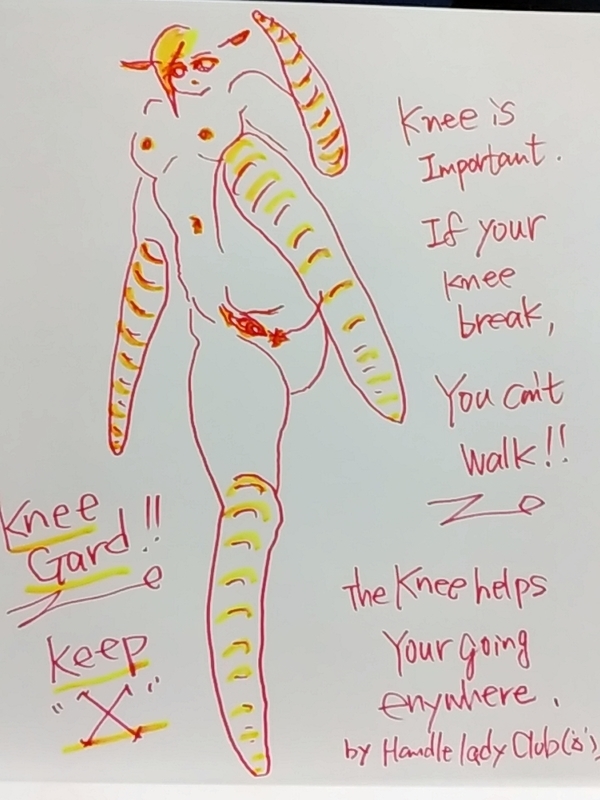 Knee is
Important.
If your
knee
break,
You can't
walk!!
Knee
Gard!!
Keep
"X"
the Knee helps
Your going
enywhere.
by Handle lady Club